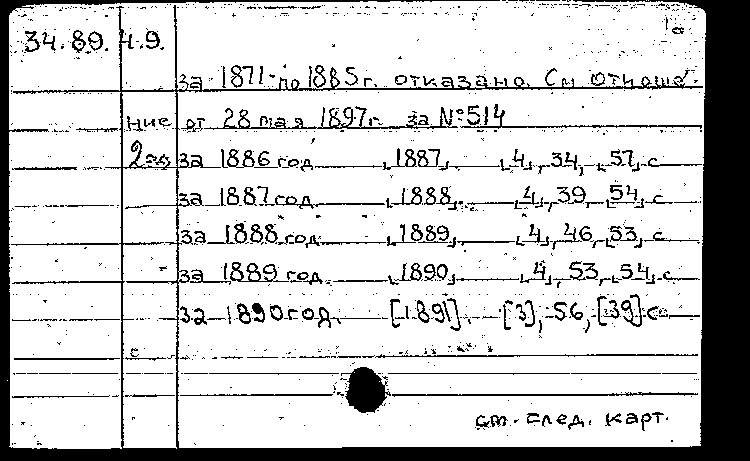 1а
34.89.4.9.
за 1871-по 1885 г. отказано. См отноше-
ние от 28 мая 1897г. за №514
за 1886 год [1887]. [4], 34, [57] с
за 1887 год [1888]. [4], 39, [54] с
за 1888 год [1889]. [4], 46, [53] с
за 1889 год [1890]. [4], 53, [54] с
за 1890 год. [1891]. [3], 56, [39] с
см. след. карт.